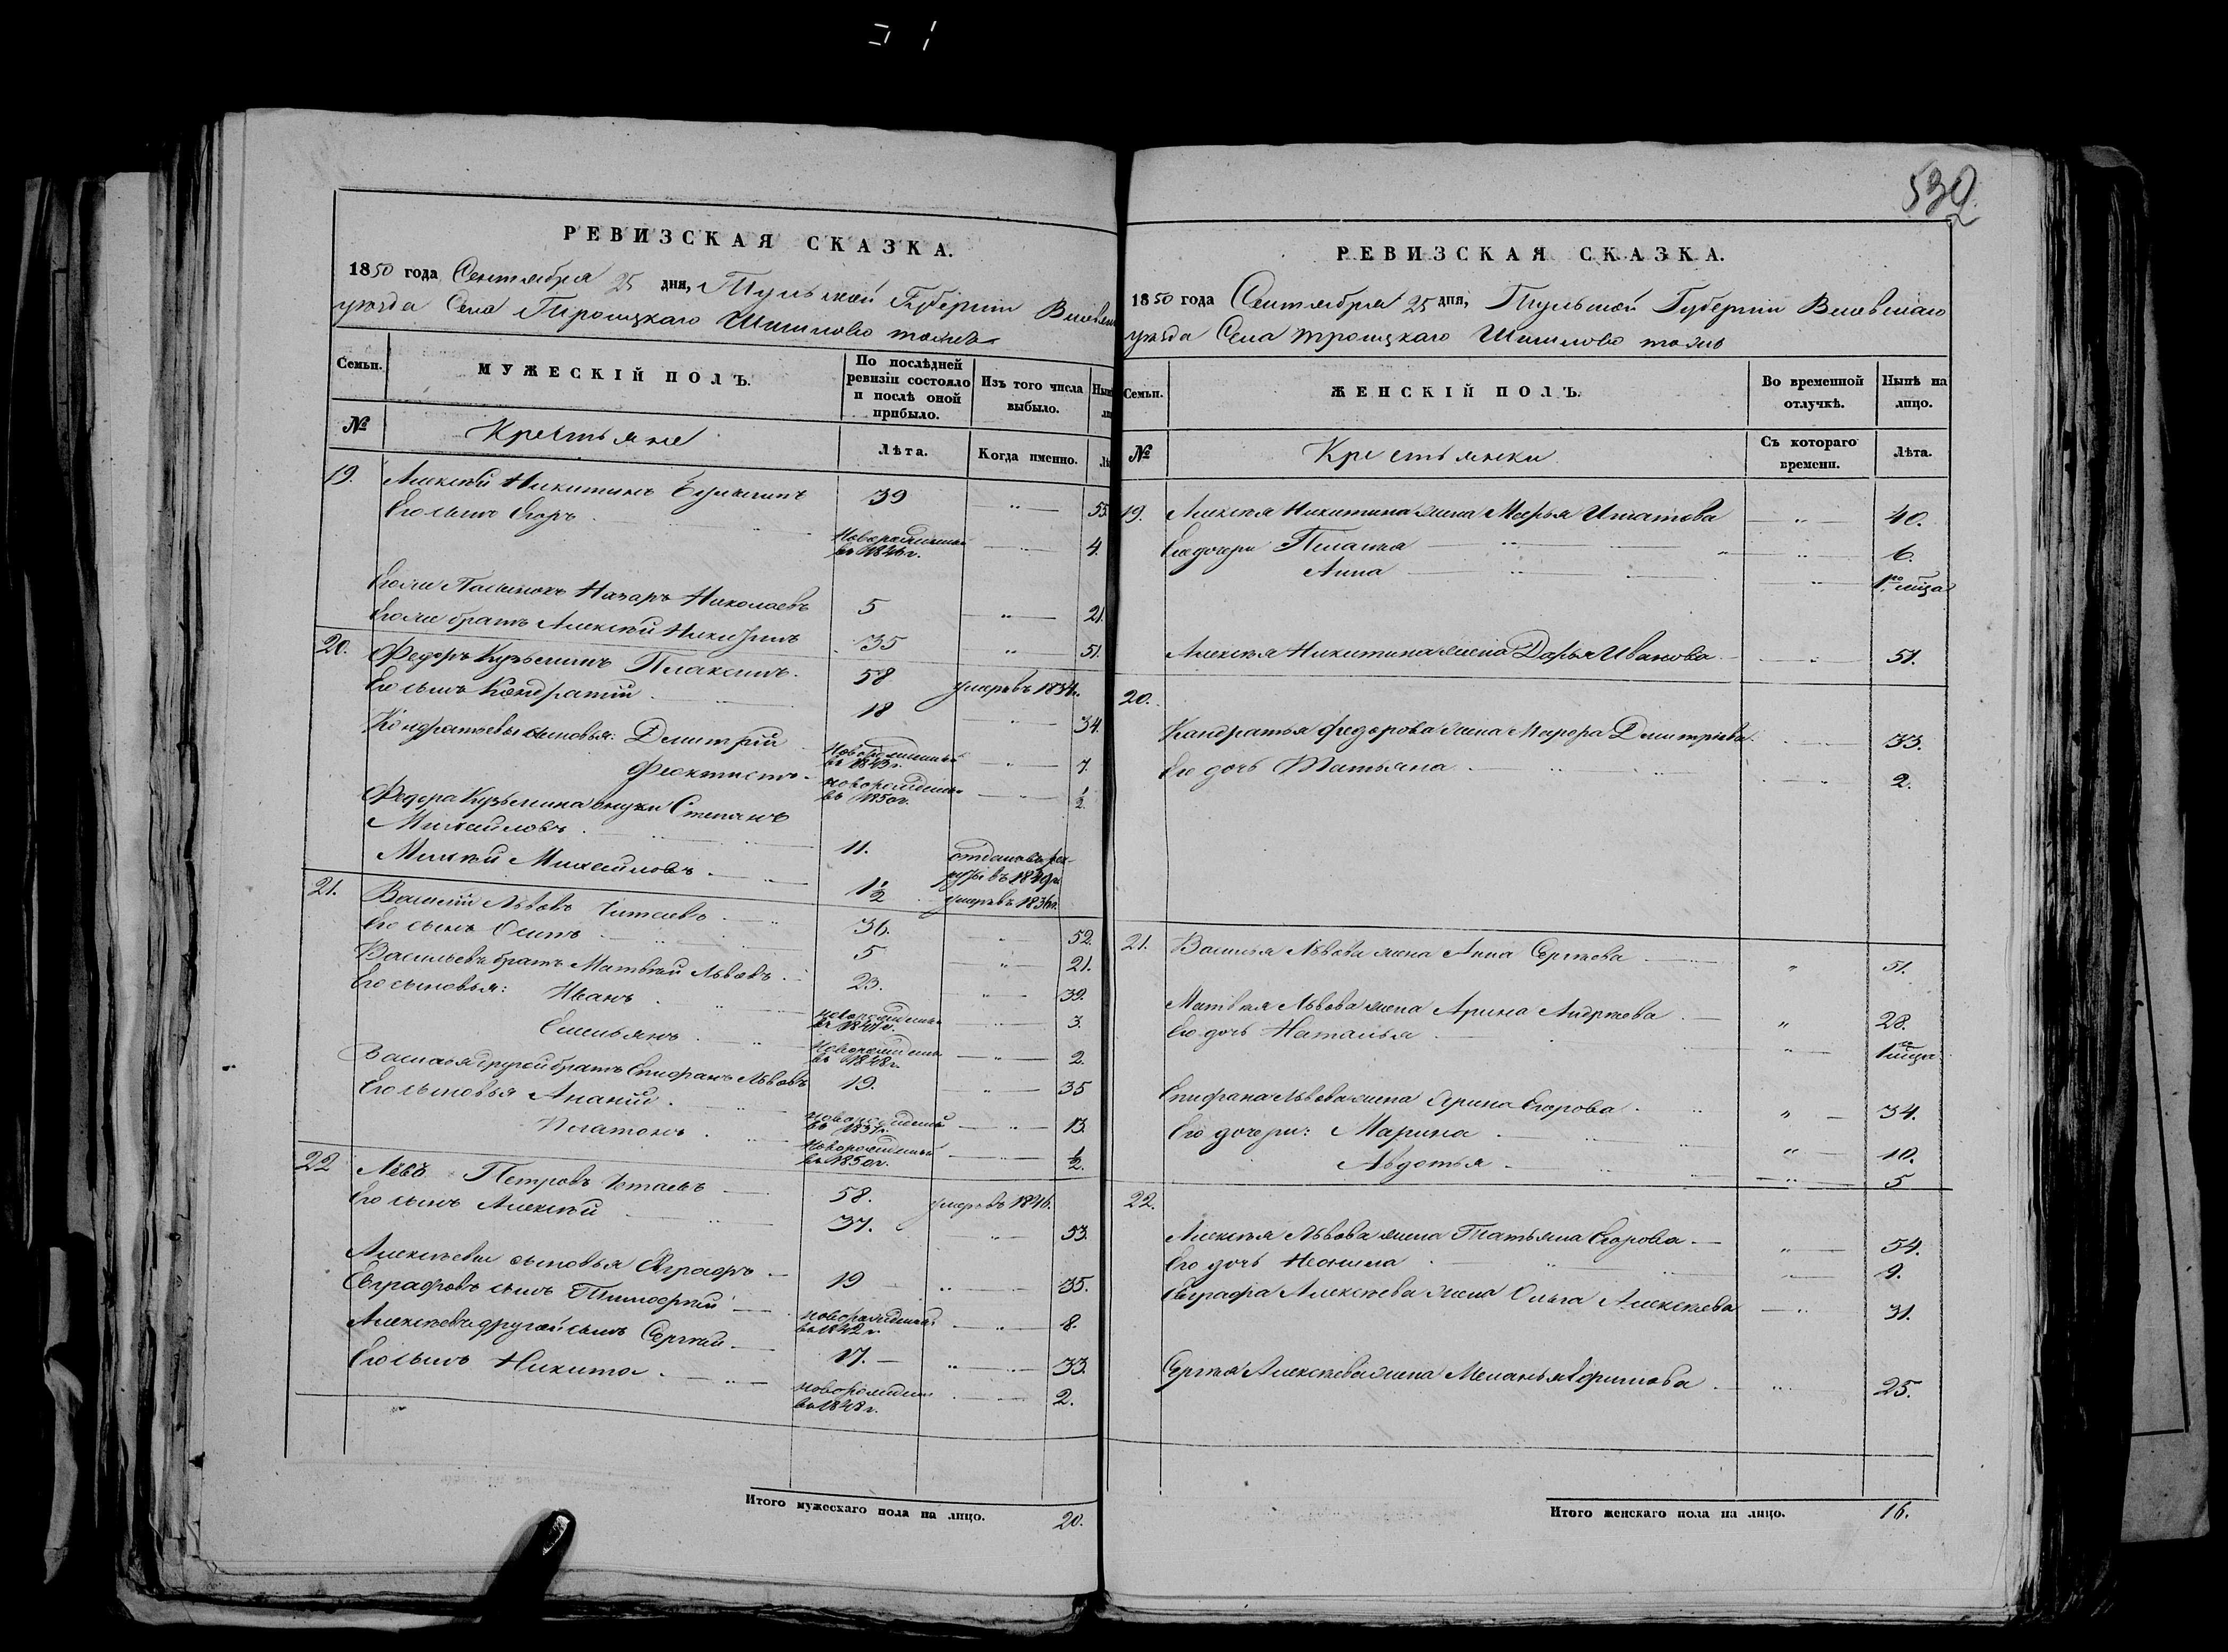 532
РЕВИЗСКАЯ СКАЗКА.
1850 года Сентября 25 дня, Тульской Губернии
уѣзда Села Троицкаго Шишлово тожъ
Семьи.
МУЖЕСКІЙ ПОЛЪ.
По послѣдней ревизіи состояло и послѣ оной прибыло.
Изъ того числа выбыло.
№
Крестьяне
Лѣта.
Когда именно.
19. Алексѣй Никитинъ 39 55.
Его сынъ Егоръ Новорожденный въ 1846 г. 4.
Его же Пасынокъ Назаръ Николаевъ 5 21.
Его же братъ Алексѣй Никитинъ 35 51.
20. Федоръ Кузьминъ Плаксинъ 58 умеръ въ 1834 г.
Его сынъ Кондратій 18 34.
Кондратьевы сыновья: Дмитрій Новорожденный въ 1843 г. 7.
Феоктистъ новорожденный въ 1850 г. 1/2
Федора Кузьмина внуки Степанъ
Михайловъ 11. отданъ въ рек-
руты въ 1849 г.
Михайловъ 1 1/2 умеръ въ 1836 г.
21. Василій Львовъ 36. 52.
Его сынъ Осипъ 5 21.
Васильевъ братъ Матвѣй Львовъ 23. 39.
Его сыновья: Иванъ новорожденный въ 1847 г. 3.
Емельянъ Новорожденный въ 1848 г. 2.
Василья другой братъ Епифанъ Львовъ 19. 35
Его сыновья Ананій новорожденный въ 1837 г. 13.
Платонъ Новорожденный въ 1850 г. 1/2.
22 Левъ Петровъ 58. умеръ въ 1846.
Его сынъ Алексѣй 37. 53.
Алексѣевы сыновья Евграфъ 19 35.
Евграфовъ сынъ Тимофей новорожденный въ 1842 г. 8.
Алексѣевъ другой сынъ Сергѣй 17. 33.
Его сынъ Никита новорожден въ 1848 г. 2.
Итого мужескаго пола на лицо. 20.
РЕВИЗСКАЯ СКАЗКА.
1850 года Сентября 25 дня, Тульской Губерніи
уѣзда Села Троицкаго Шишлово тожъ
Семьи.
ЖЕНСКІЙ ПОЛЪ.
Во временной отлучкѣ.
Нынѣ на лицо.
№
Крестьянки
Съ котораго времени.
Лѣта.
19. Алексѣя Никитина жена Марья Игнатова 40.
Его дочери Пелагея 6.
Анна
Алексѣя Никитина жена Дарья Иванова 51.
20.
Кандратья Федорова жена Дмитріева 33.
Его дочь Татьяна 2.
21. Василья Львова жена Анна Сергѣева 51.
Матвея Львова жена Арина Андреева 28.
Его дочь Наталья
Епифана Львова жена Арина Егорова 34.
Его дочери: Марина 10.
Авдотья 5
22.
Алексѣя Львова жена Татьяна Егорова 54.
Его дочь Неонила 9.
Евграфа Алексѣева жена Ольга Алексѣева 31.
Сергѣя Алексѣева жена Меланья Ефимова 25.
Итого женскаго пола на лицо. 16.